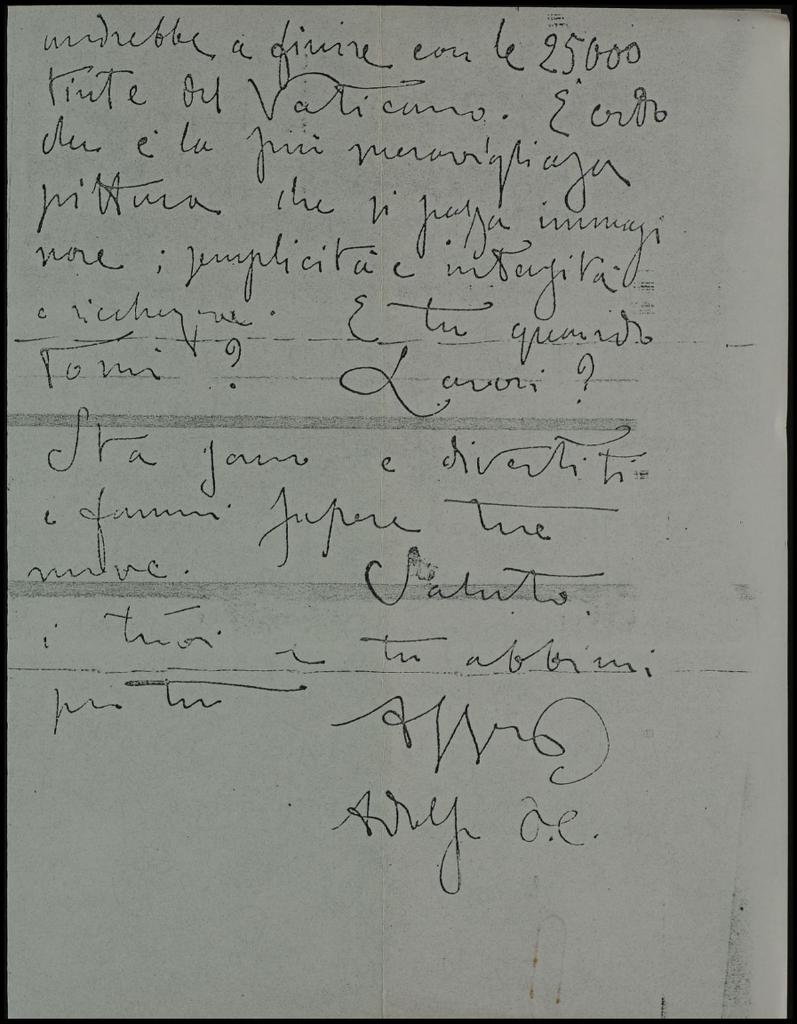 andrebbe a finire con le 25000
tinte del Vaticano. E credo
che è la più meravigliosa
pittura che si possa immagi
nare; semplicità e integrità
e ricchezza. E tu quando
torni? Lavori?
Sta sano e divertiti
e fammi sapere tue
nuove. Saluto
i tuoi e tu abbimi
per tuo
Aff.mo
Adolfo D.C.